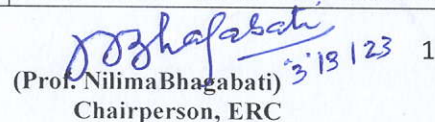 NBhagabati
3/3/23 1
(Prof. NilimaBhagabati)
Chairperson, ERC